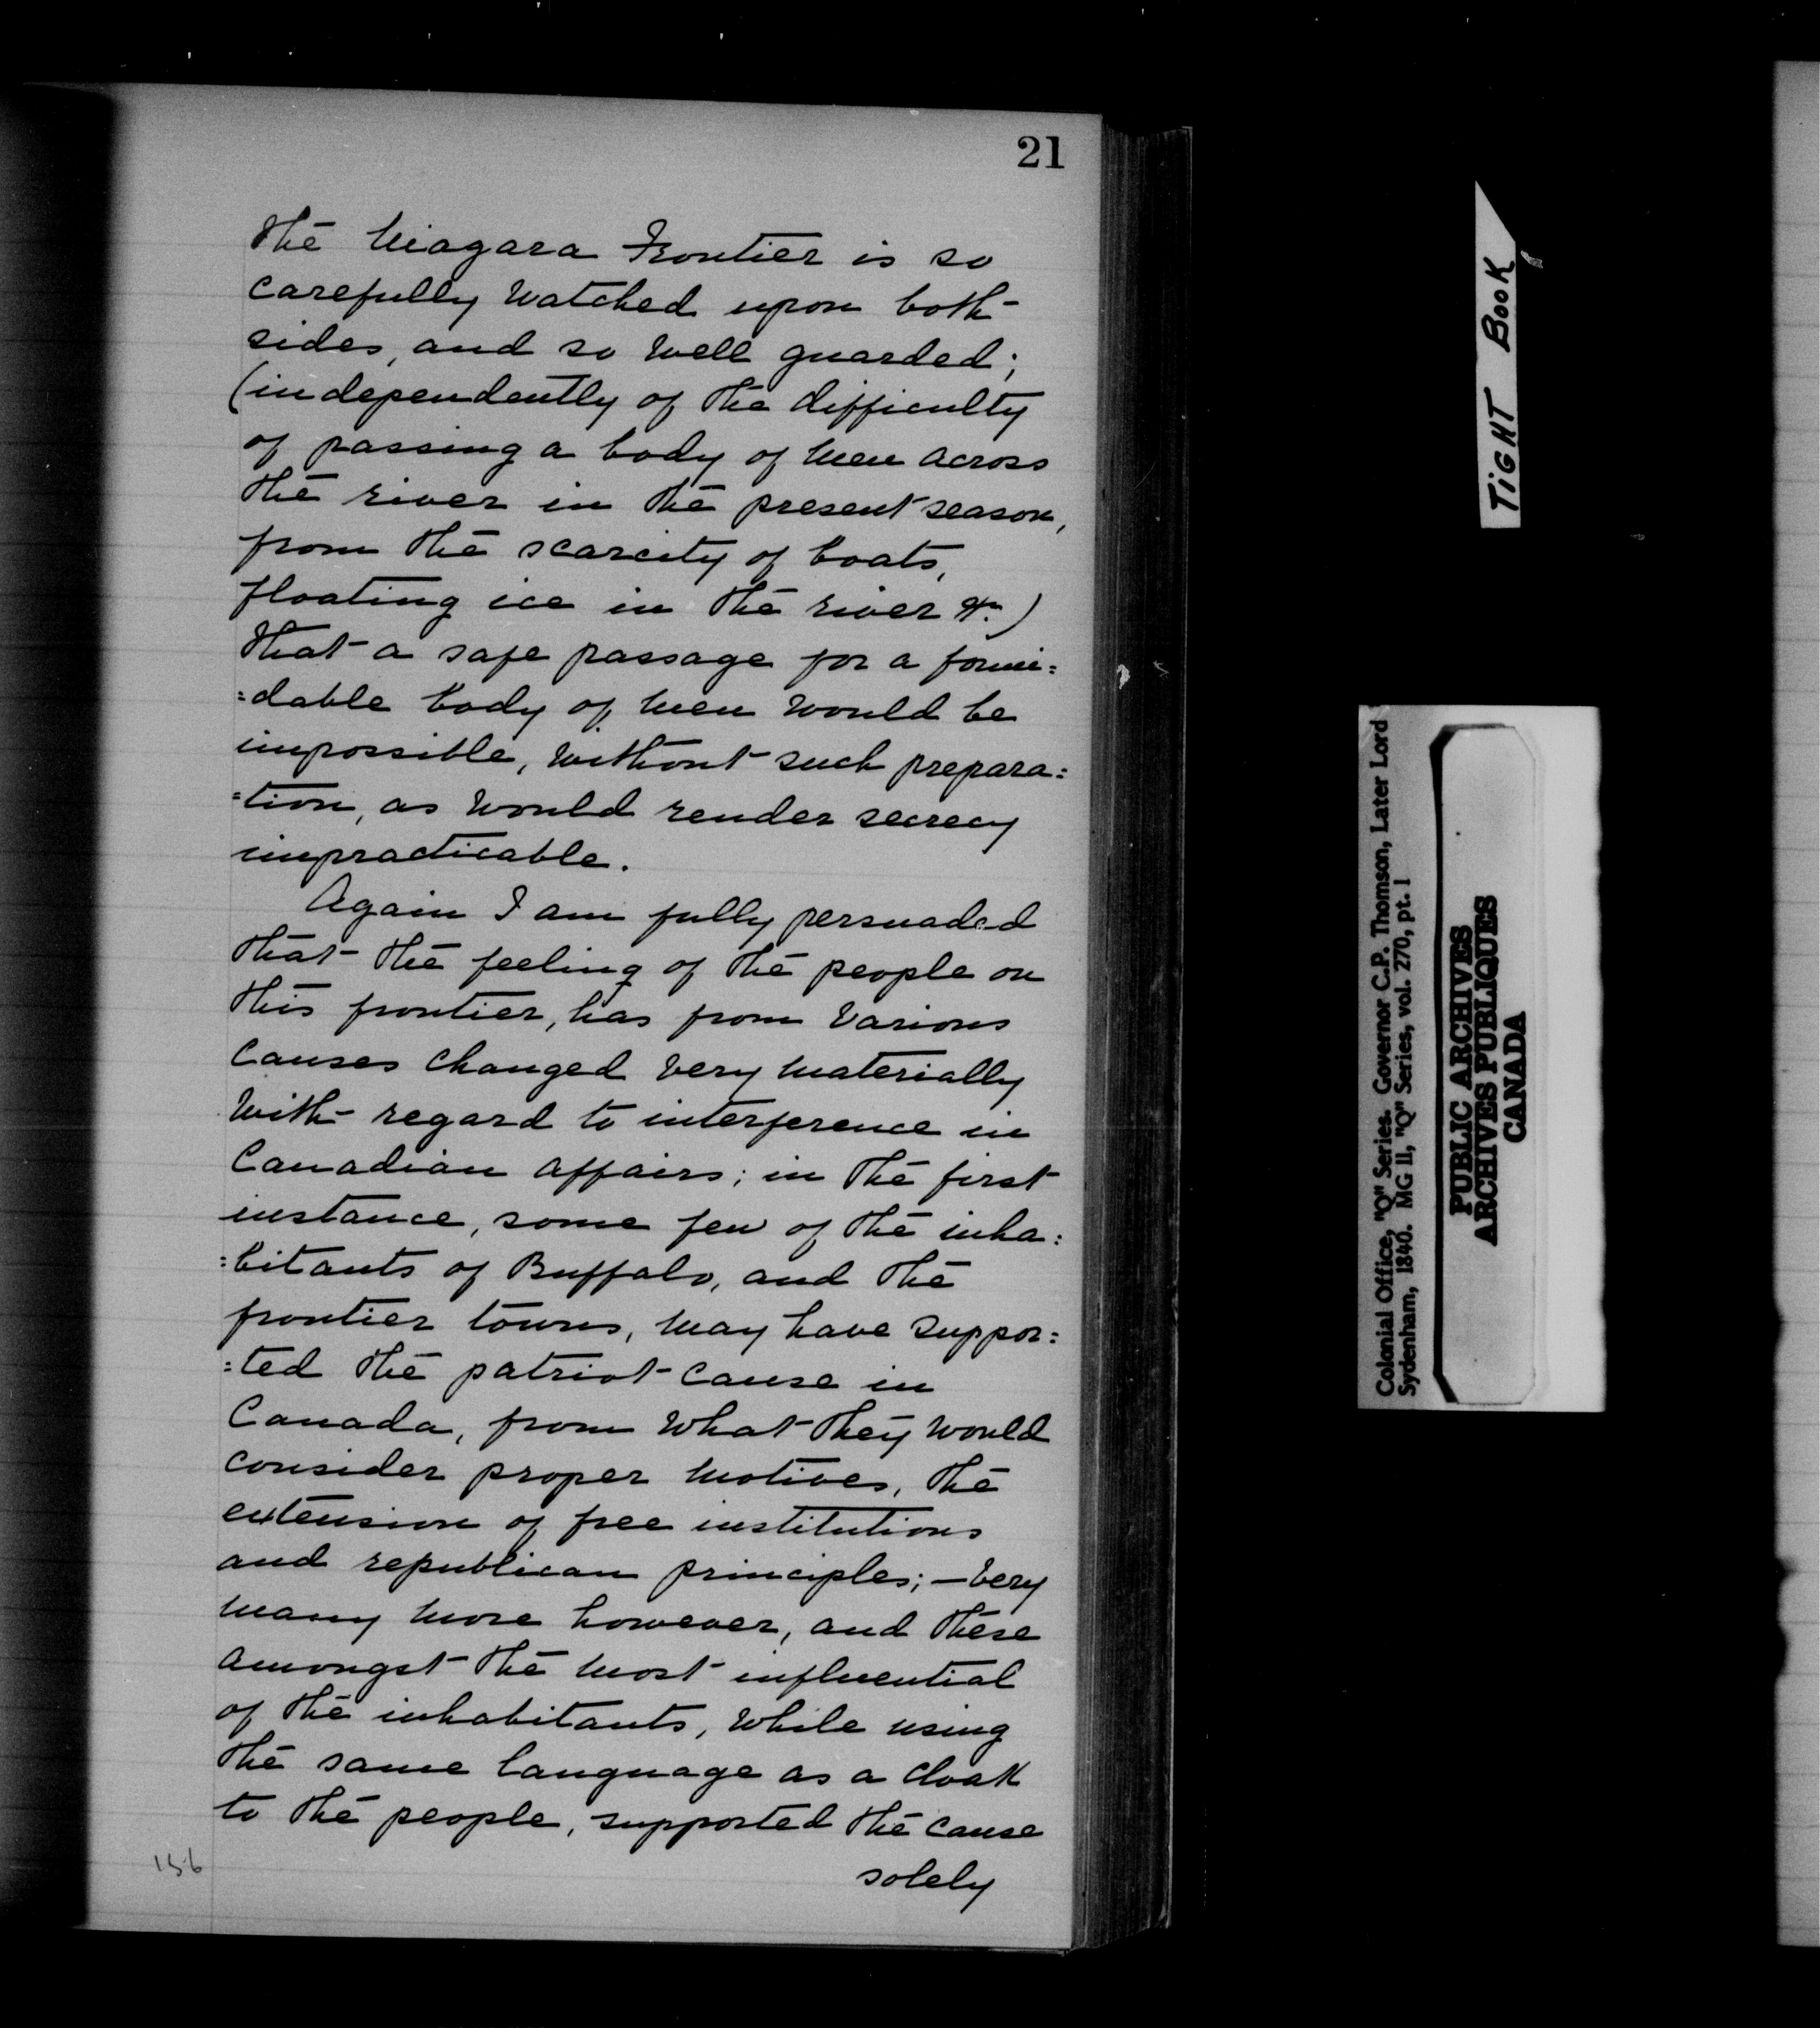 21
the Niagara Frontier is so
carefully watched upon both
sides, and so well guarded;
(independently of the difficulty
of passing a body of men across
the river in the present season,
from the scarcity of boats,
floating ice in the river &c.)
that a safe passage for a formi=
=dable body of men would be
impossible, without such prepara=
=tion, as would render secrecy
impracticable.
Again I am fully persuaded
that the feeling of the people on
this frontier, has from various
causes changed very materially
with regard to interference in
Canadian affairs; in the first
instance, some few of the inha=
=bitants of Buffalo, and the
frontier towns, may have suppor=
=ted the patriot cause in
Canada, from what they would
consider proper motives, the
extension of free institutions
and republican principles; — very
many more however, and these
amongst the most influential
of the inhabitants, while using
the same language as a cloak
to the people, supported the cause
solely
156
TIGHT BOOK
Colonial Office, "Q" Series. Governor C.P. Thomson, Later Lord
Sydenham, 1840. MG 11, "Q" Series, vol. 270, pt. 1
PUBLIC ARCHIVES
ARCHIVES PUBLIQUES
CANADA